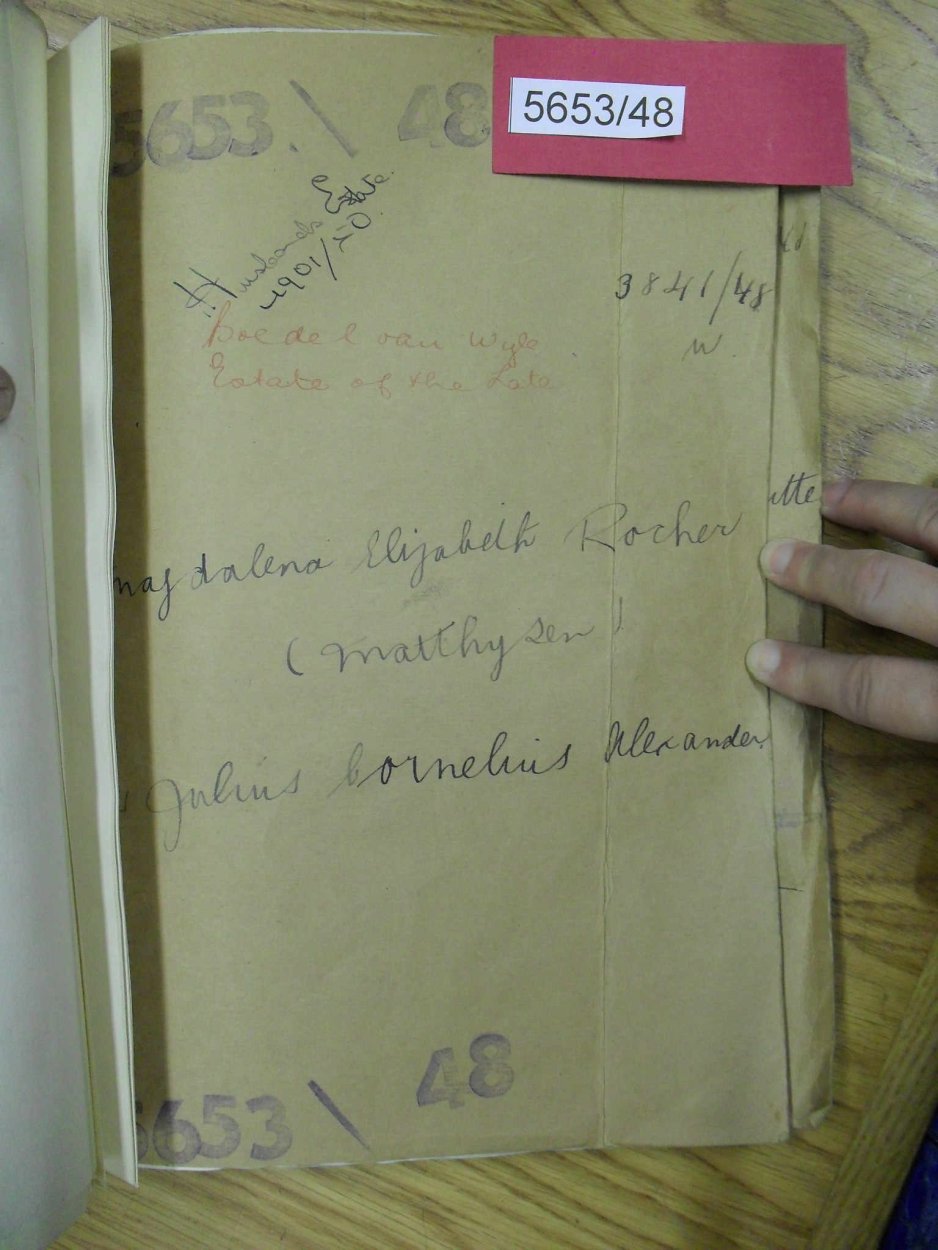 5653/48
5653 \ 48
Husbands Estate
1901/50
3841/48
W.
Boedel van Wyle
Estate of the Late
magdalena Elizabeth Rocher
(Matthysen)
Julius Cornelius Alexander
5653 \ 48